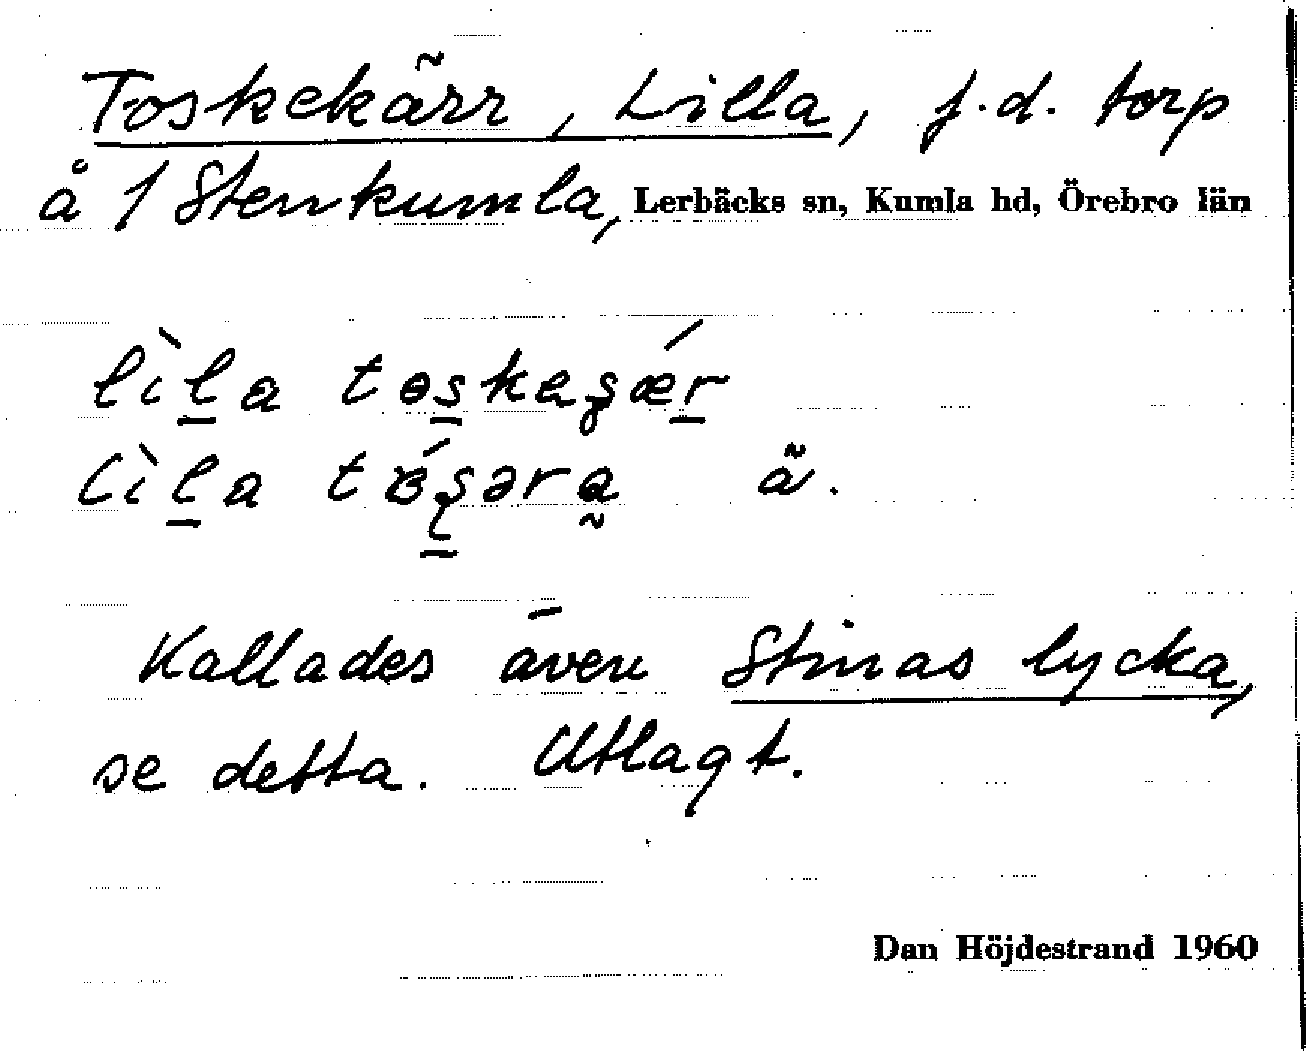 Toskekärr, Lilla, f.d. torp
å 1 Stenkumla, Lerbäcks sn, Kumla hd, Örebro län
lìl̠a tɵs̠keʂǽr̠
lìl̠a ä.
Kallades även Stinas lycka,
se detta. Utlagt.
Dan Höjdestrand 1960